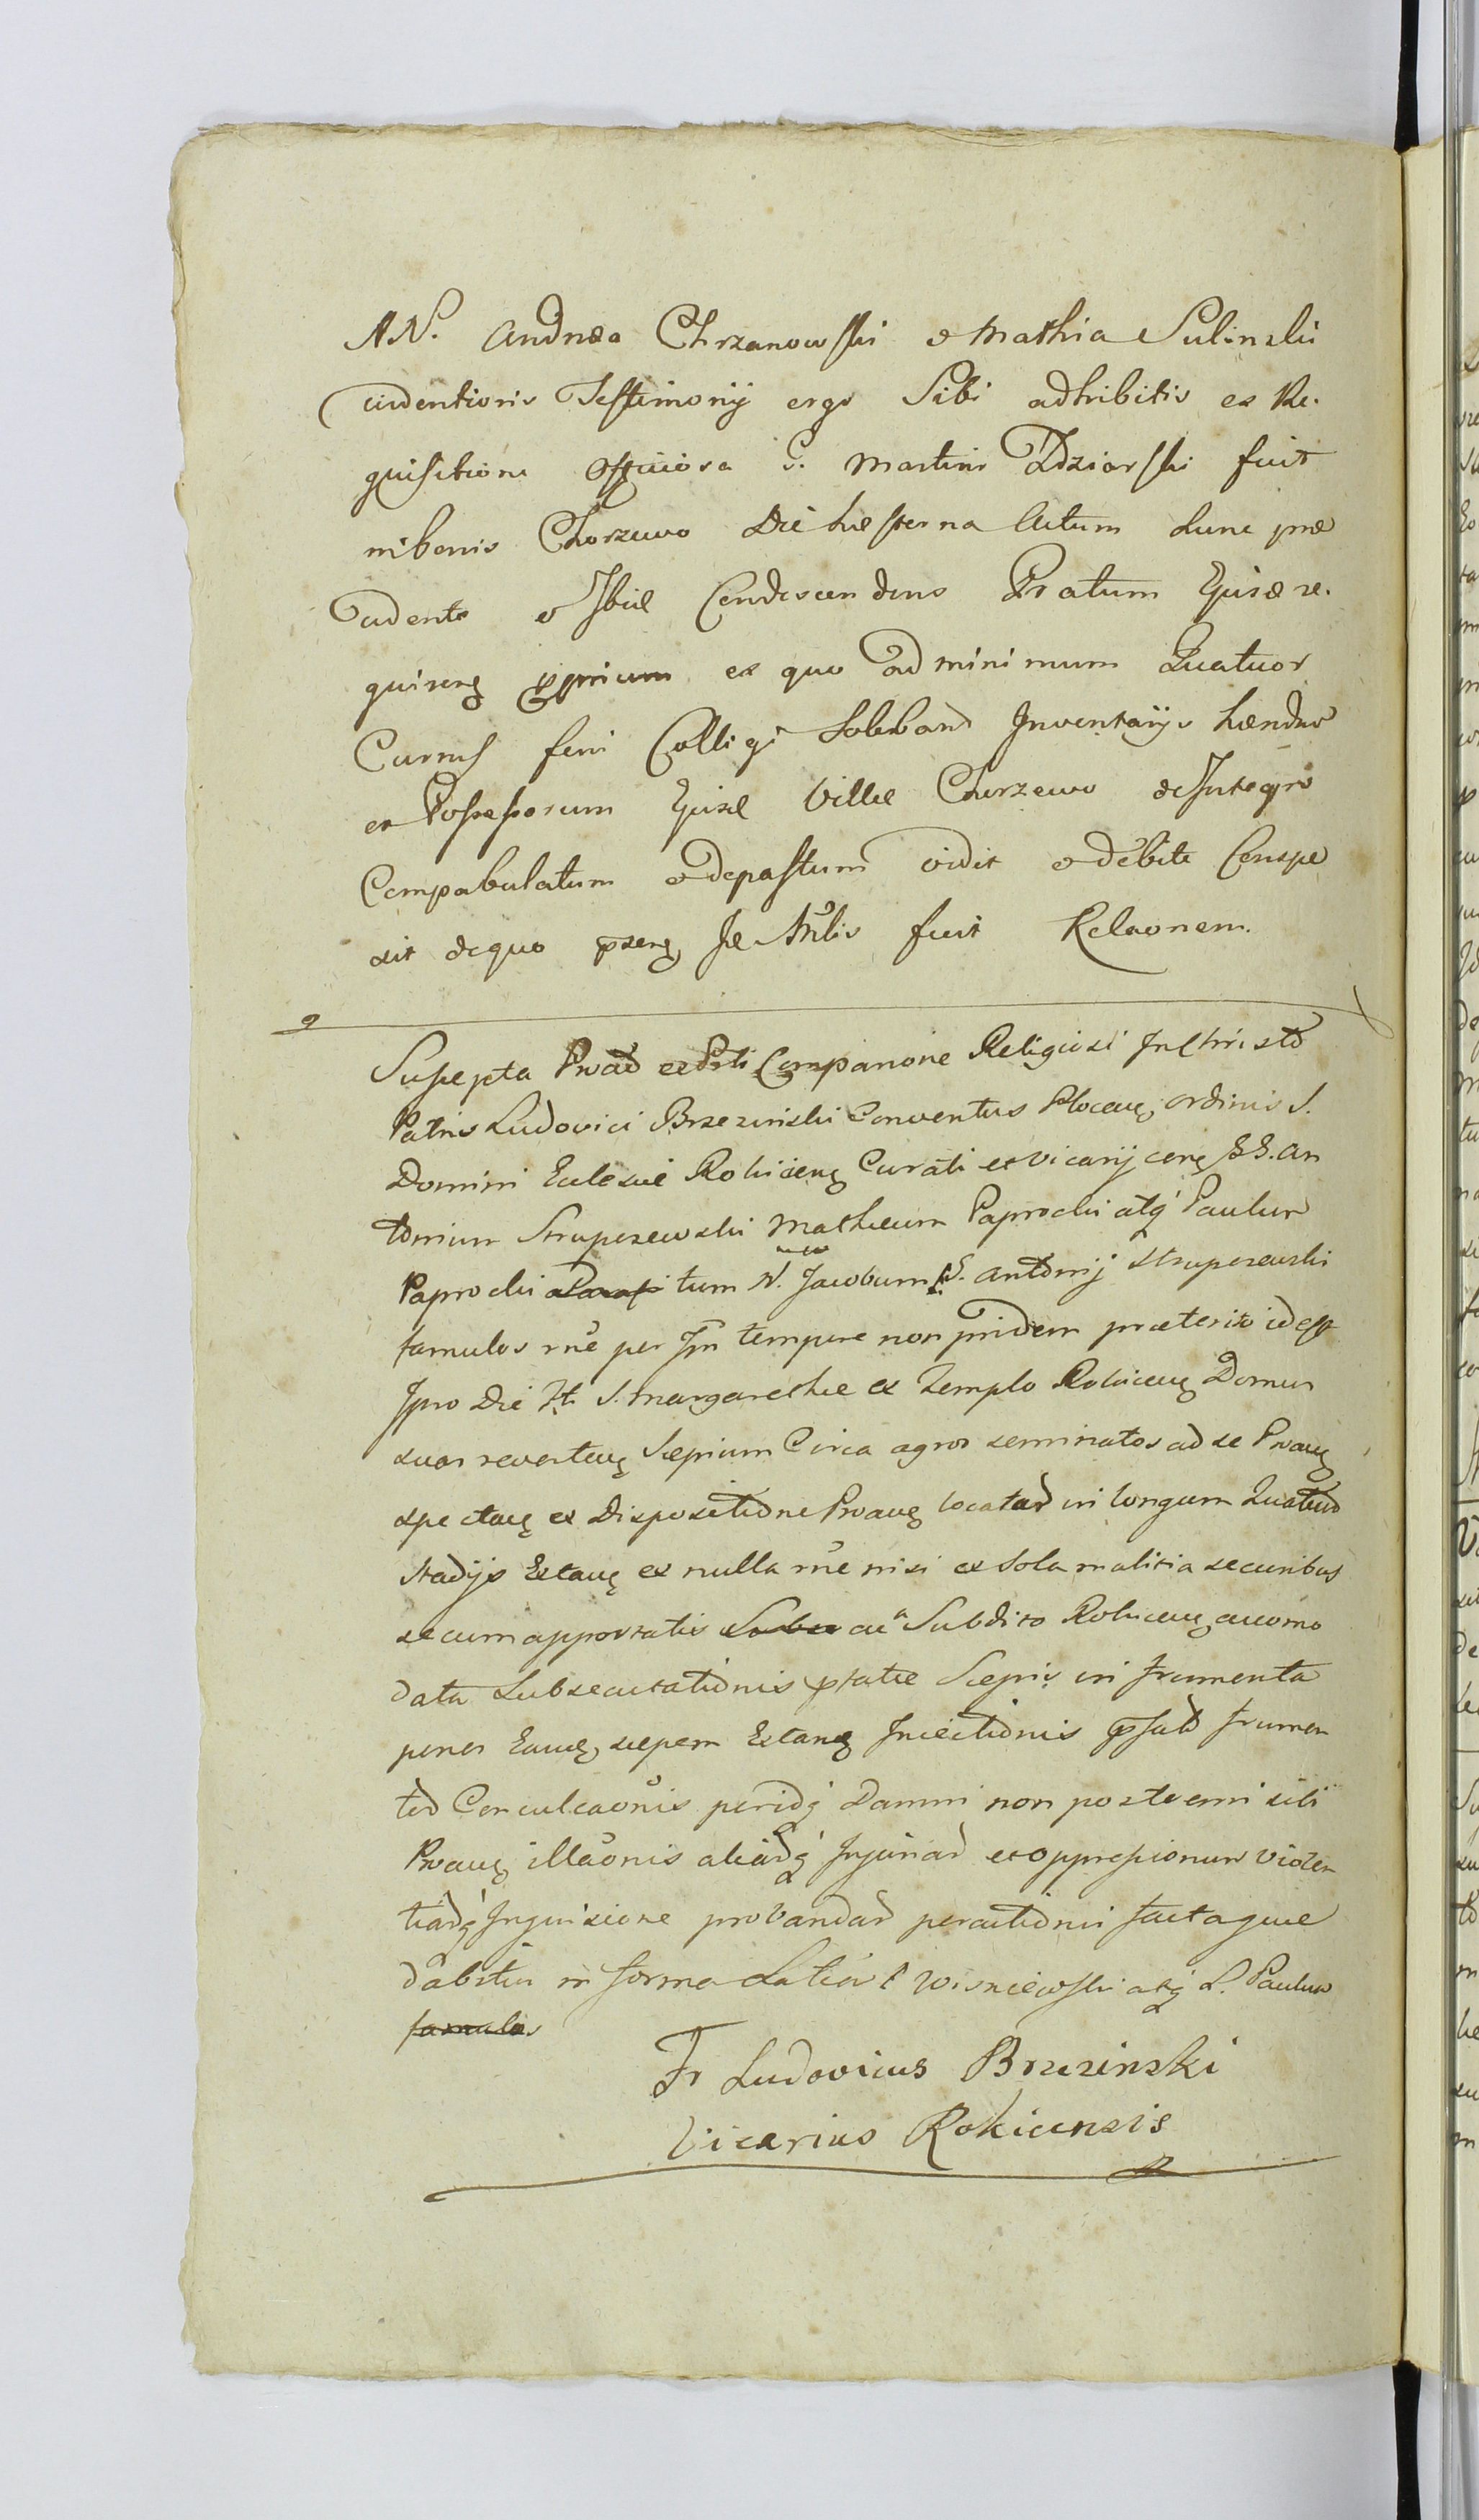 NN. Andrea Chrzanowski et Mathia Sulinski
evidentioris Testimonij ergo Sibi adhibitis ex Re.
quisitione Officiosa G. Martini Zdziarski fuit
in bonis Chorzewo Die hesterna Actum hunc præ
cedente et Ibid Condescendens Pratum Ejusd re.
quirens pprium ex quo ad minimum Quatuor
Currus feni Colligi solebant
et Possessorum Ejusd Villæ Chorzewo de Integro
Compabulatum et depastum vidit et debite Conspe
xit de quo fuit Relaonem.
Suscepta ex Parti Companone Religiosi In Christo
Patris Ludovici Brzezinski Conventus Plocen, ordinis S.
Domini Eclesiæ Rokicens Curati et Vicarij GG. An
tonium Strupczewski Matheum Paprocki atq Paulum
Paprocki tum N. Jacobum G. Antonij Strupczewski
famulos rne per tempore non pridem præterito id est
Ipso Die S. Margarethæ ex Templo Rokicen Domum
suas reverten Sepium Circa agros seminatos ad se Proan
spectan ex Dispositione Proan locatar in longum Quatuor
stadijs Extan ex nulla rne nisi ex sola malitia securibus
secum apportatis ac a Subdito Rokicen accomo
data Subsecutationis Sepis in frumenta
penes Eand, sepem Extan Iniectionis frumen
tor Conculcaonis Damni non postremi sibi
Proan illaonis aliarq Injuriar et oppressionum violen
tiarq Inquisitione probandar peractionis factaque
dabitur in forma Latiori Wisniewski atq L. Paulum
famulos
Fr Ludovicus Brzezinski
Vicarius Rokicensis